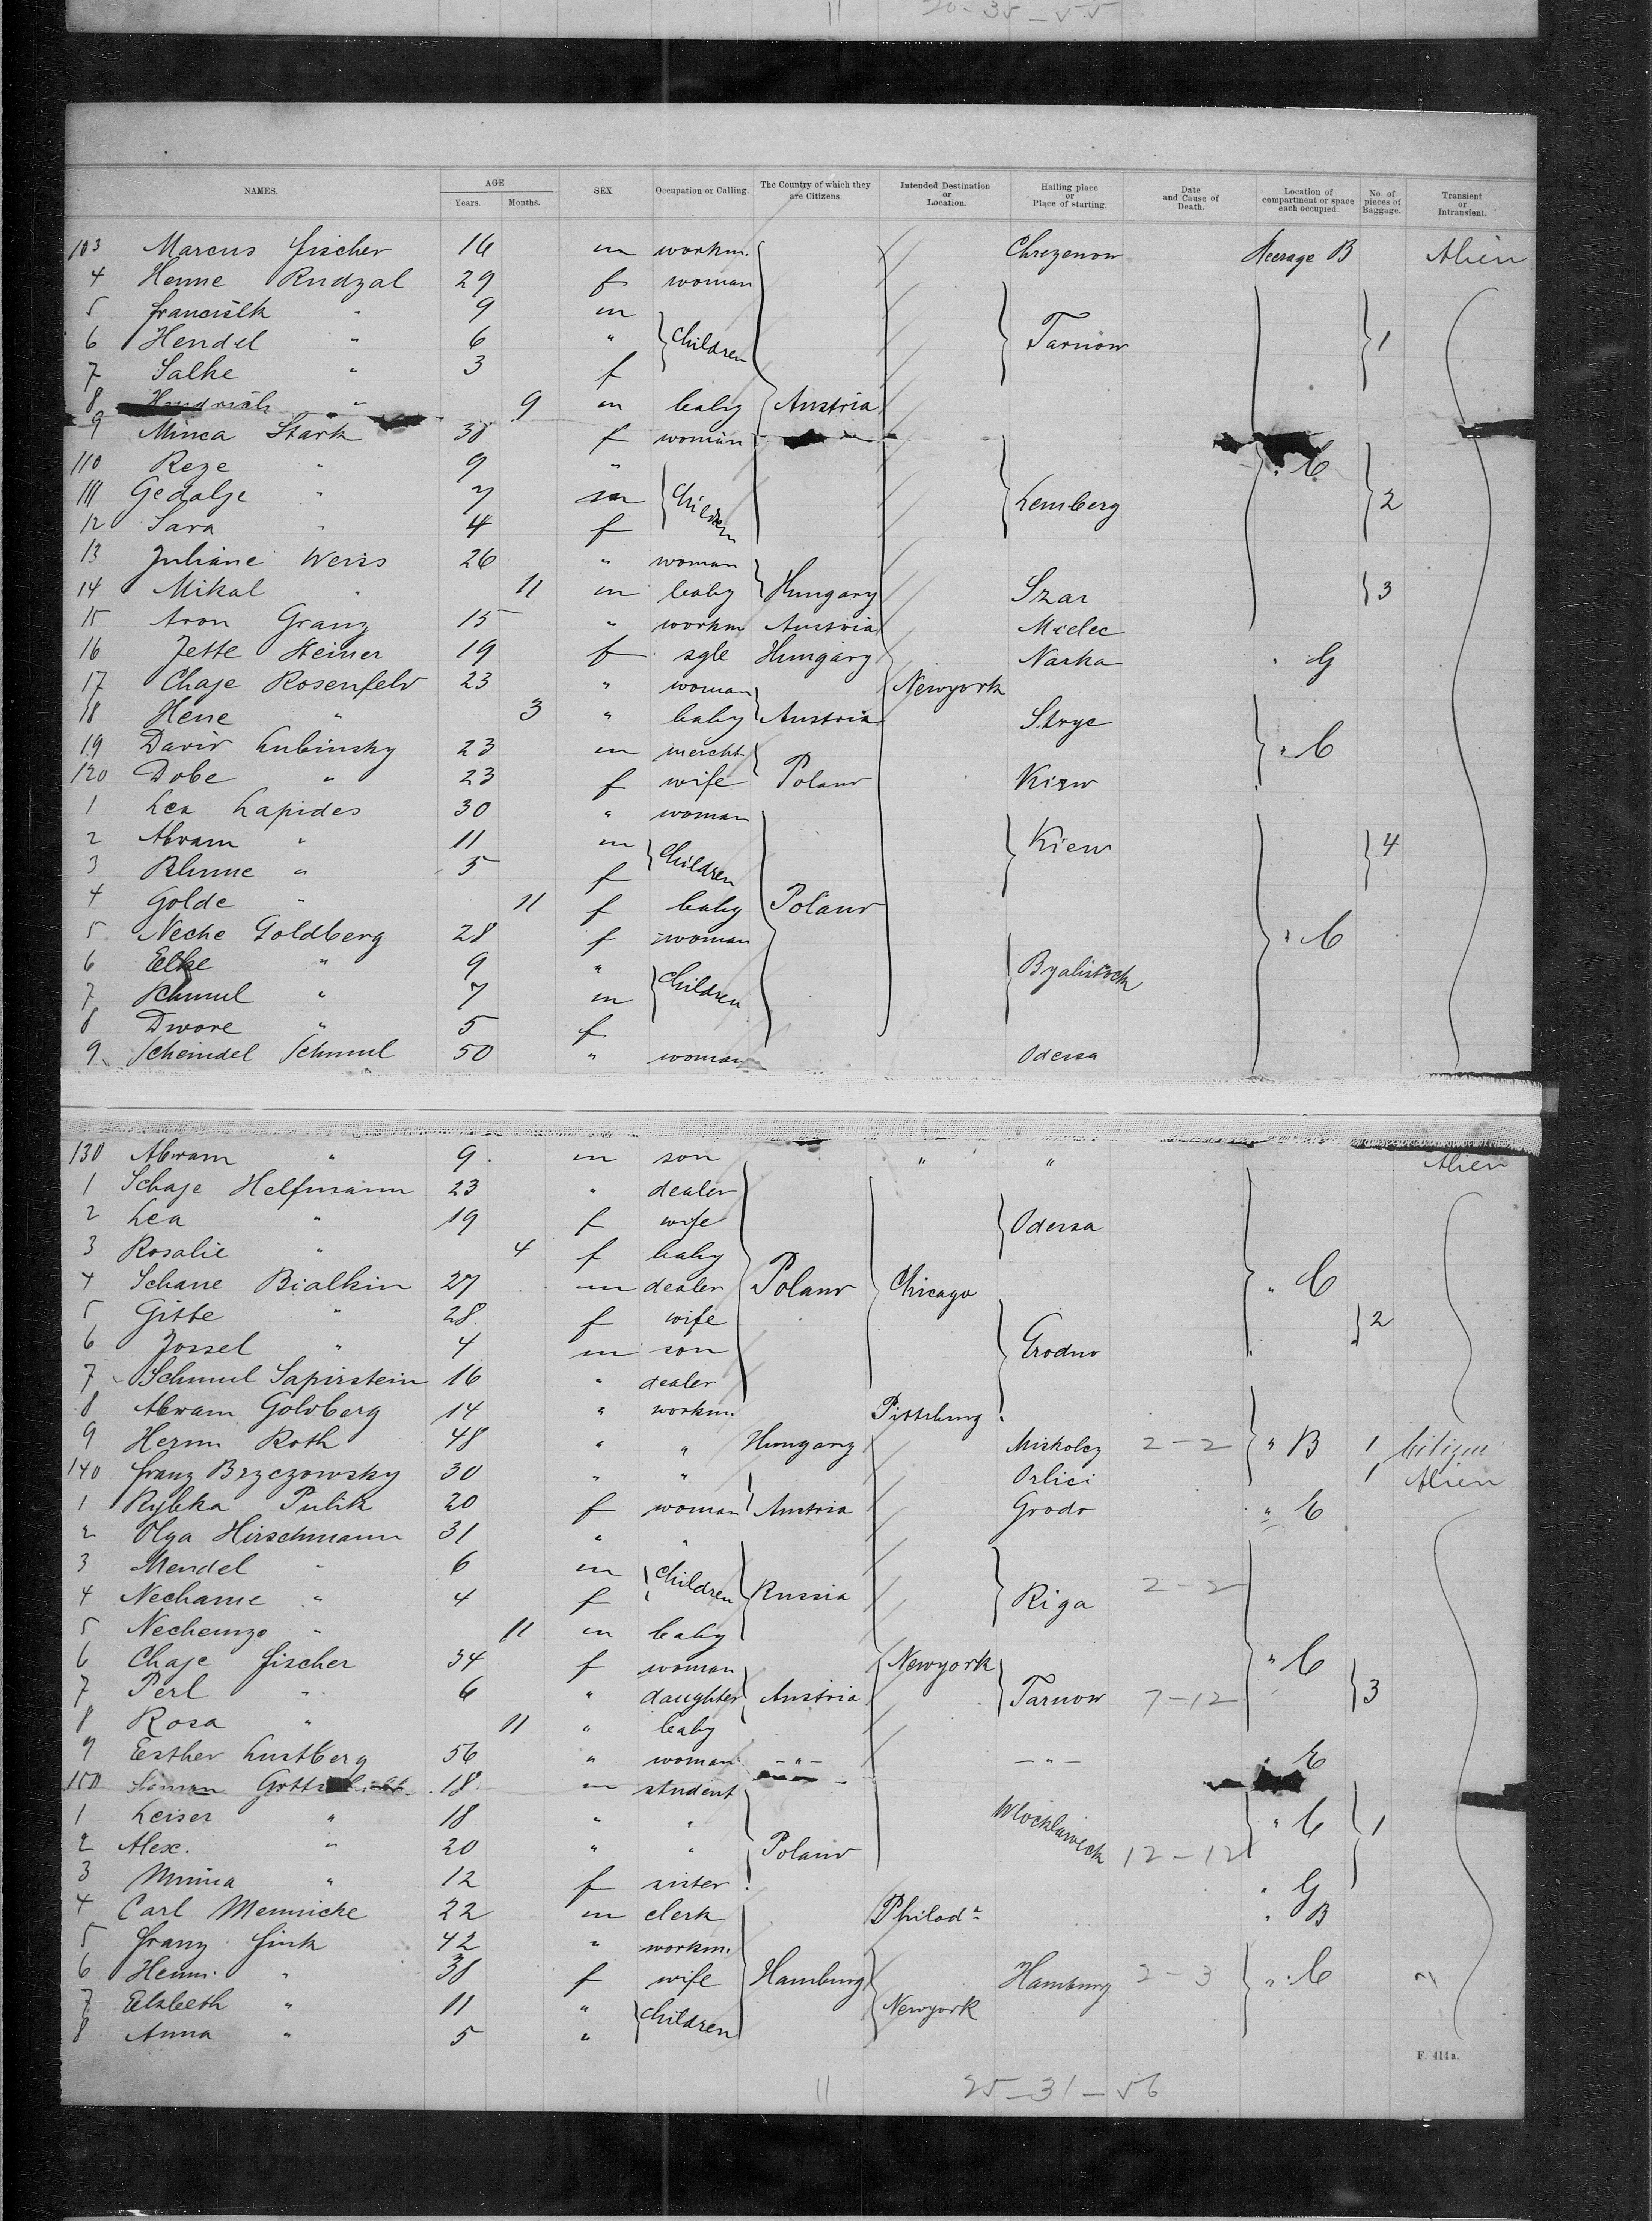 20-35-55
NAMES. AGE Years. Months. SEX Occupation or Calling. The Country of which they are Citizens. Intended Destination or Location. Hailing place or Place of starting. Date and Cause of Death. Location of compartment or space each occupied. No. of pieces of Baggage. Transient or Intransient.
103 Marcus Fischer 16 m workm. Chrezenow Steerage B Alien
4 Henne Rudzal 29 f woman
5 " 9 m
6 Hendel " 6 " Children Tarnow 1
7 Salke " 3 f
8 " 9 m baby Austria
9 Minca Stark 38 f woman
110 Reze " 9 " " C
111 Gedalje " 7 m Children Lemberg 2
12 Sara " 4 f
13 Juliane Weiss 26 " woman
14 Mikal " 11 m baby Hungary Szar 3
15 Aron Granz 15 " workm Austria Mielec
16 Jette Steiner 19 f sgle Hungary Narka " G
17 Chaje Rosenfeld 23 " woman Newyork
18 Hene " 3 " baby Austria Strye
19 David Lubinsky 23 m mercht. " C
120 Dobe " 23 f wife Poland Kiew
1 Lea Lapides 30 " woman
2 Abram " 11 m Children Kiew 4
3 Blume " 5 f
4 Golde " 11 f baby Poland
5 Neche Goldberg 28 f woman " C
6 Elke " 9 " Children Byalistock
7 Schmul " 7 m
8 Dwore " 5 f
9 Scheindel Schmul 50 " woman Odessa
130 Abram " 9 m son " " Alien
1 Schaje Helfmann 23 " dealer
2 Lea " 19 f wife Odessa
3 Rosalie " 4 f baby
4 Schane Bialkin 27 m dealer Poland Chicago " C
5 Gitte " 28 f wife 2
6 Jossel " 4 m son Grodno
7 Schmul Sapirstein 16 " dealer
8 Abram Goldberg 14 " workm. Pittsburg
9 Herm Roth 48 " " Hungary Miskolcz 2-2 " B 1 Citizen
140 Franz Brzczowsky 30 " " Orlici 1 Alien
1 Rybka Pulik 20 f woman Austria Grodo " E
2 Olga Hirschmann 31 " "
3 Mendel " 6 m Children 2-2
4 Nechame " 4 f Russia Riga
5 " 11 m baby
6 Chaje Fischer 34 f woman Newyork " C
7 Perl " 6 " daughter Austria Tarnow 7-12 3
8 Rosa " 11 " baby
9 Esther Lustberg 56 " woman -"- -"- " E
150 18 m student
1 Leiser " 18 " " Wlocklaweck " C 1
2 Alex. " 20 " " Poland 12-12
3 Minna " 12 f sister " G
4 Carl Mennicke 22 m clerk Philada " B
5 Franz Fink 42 " workm.
6 Henni " 38 f wife Hamburg Hamburg 2-3 " C "
7 Elsbeth " 11 " Children Newyork
8 Anna " 5 "
F. 414a.
11 25-31-56